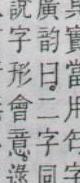 實當用句
廣韻曰二字同
說字形會意